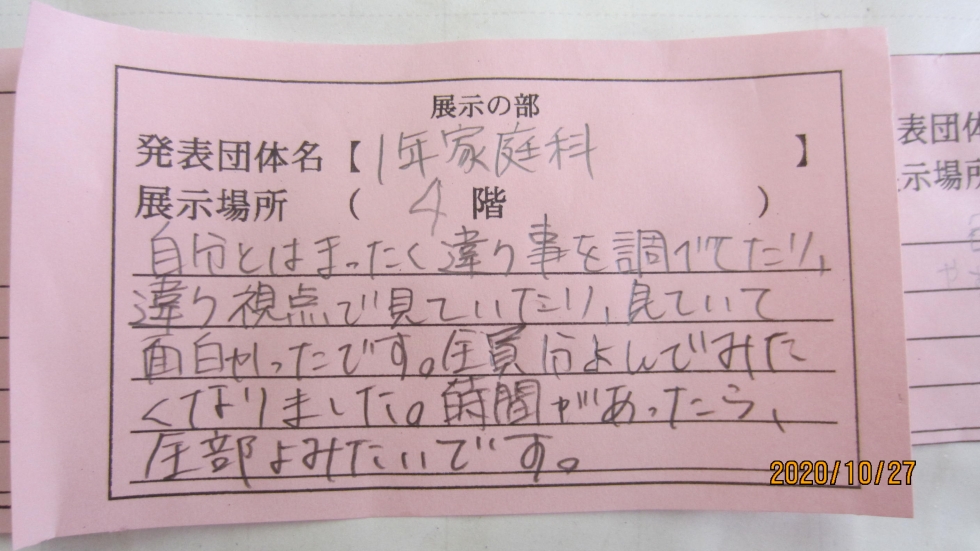 展示の部
発表団体名【1年家庭科】
展示場所 ( 4 階 )
自分とはまったく違う事を調べてたり、
違う視点で見ていたり、見ていて
面白かったです。全員分よんでみた
くなりました。時間があったら、
全部よみたいです。
表団体
示場所
2020/10/27